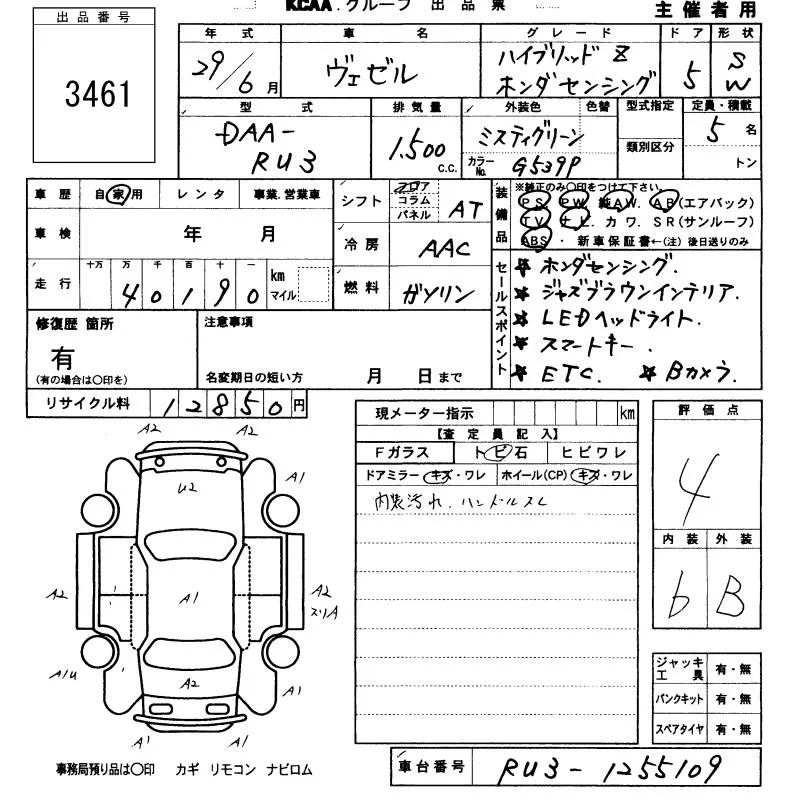 KCAA.グループ 出品票 主催者用
出品番号
3461
年式 車名 グレード ドア 形状
29/6月 ヴェゼル ハイブリッド Z ホンダセンシング 5 SW
型式 排気量 外装色 色替 型式指定 定員・積載
DAA-RU3 1.500 c.c. ミスティグリーン 類別区分 5名
カラーNo. G539P トン
車歴 自家用 レンタ 事業.営業車
シフト フロア コラム パネル AT
装備品 ※純正のみ〇印をつけて下さい。
PS PW 純AW. AB(エアバック)
TV ナビ. カワ. SR(サンルーフ)
ABS・新車保証書←(注)後日送りのみ
車検 年 月
冷房 AAC
走行 十万 万 千 百 十 一 km マイル
4 0 1 9 0
燃料 ガソリン
セールスポイント
★ ホンダセンシング.
★ ジャズブラウンインテリア.
★ LEDヘッドライト.
★ スマートキー.
★ ETC. ★ Bカメラ.
修復歴 箇所
有
(有の場合は〇印を)
注意事項
名変期日の短い方 月 日まで
リサイクル料 12850円
現メーター指示 km
【査定員記入】
Fガラス トビ石 ヒビワレ
ドアミラー キズ・ワレ ホイール(CP) キズ・ワレ
内装汚れ. ハンドルスレ
評価点
4
内装 外装
b B
A2 A2
U2
A1
A2 A1 A2
スリA
A1U A2 A1
A1 A1
ジャッキ工具 有・無
パンクキット 有・無
スペアタイヤ 有・無
事務局預り品は〇印 カギ リモコン ナビロム
車台番号 RU3-1255109